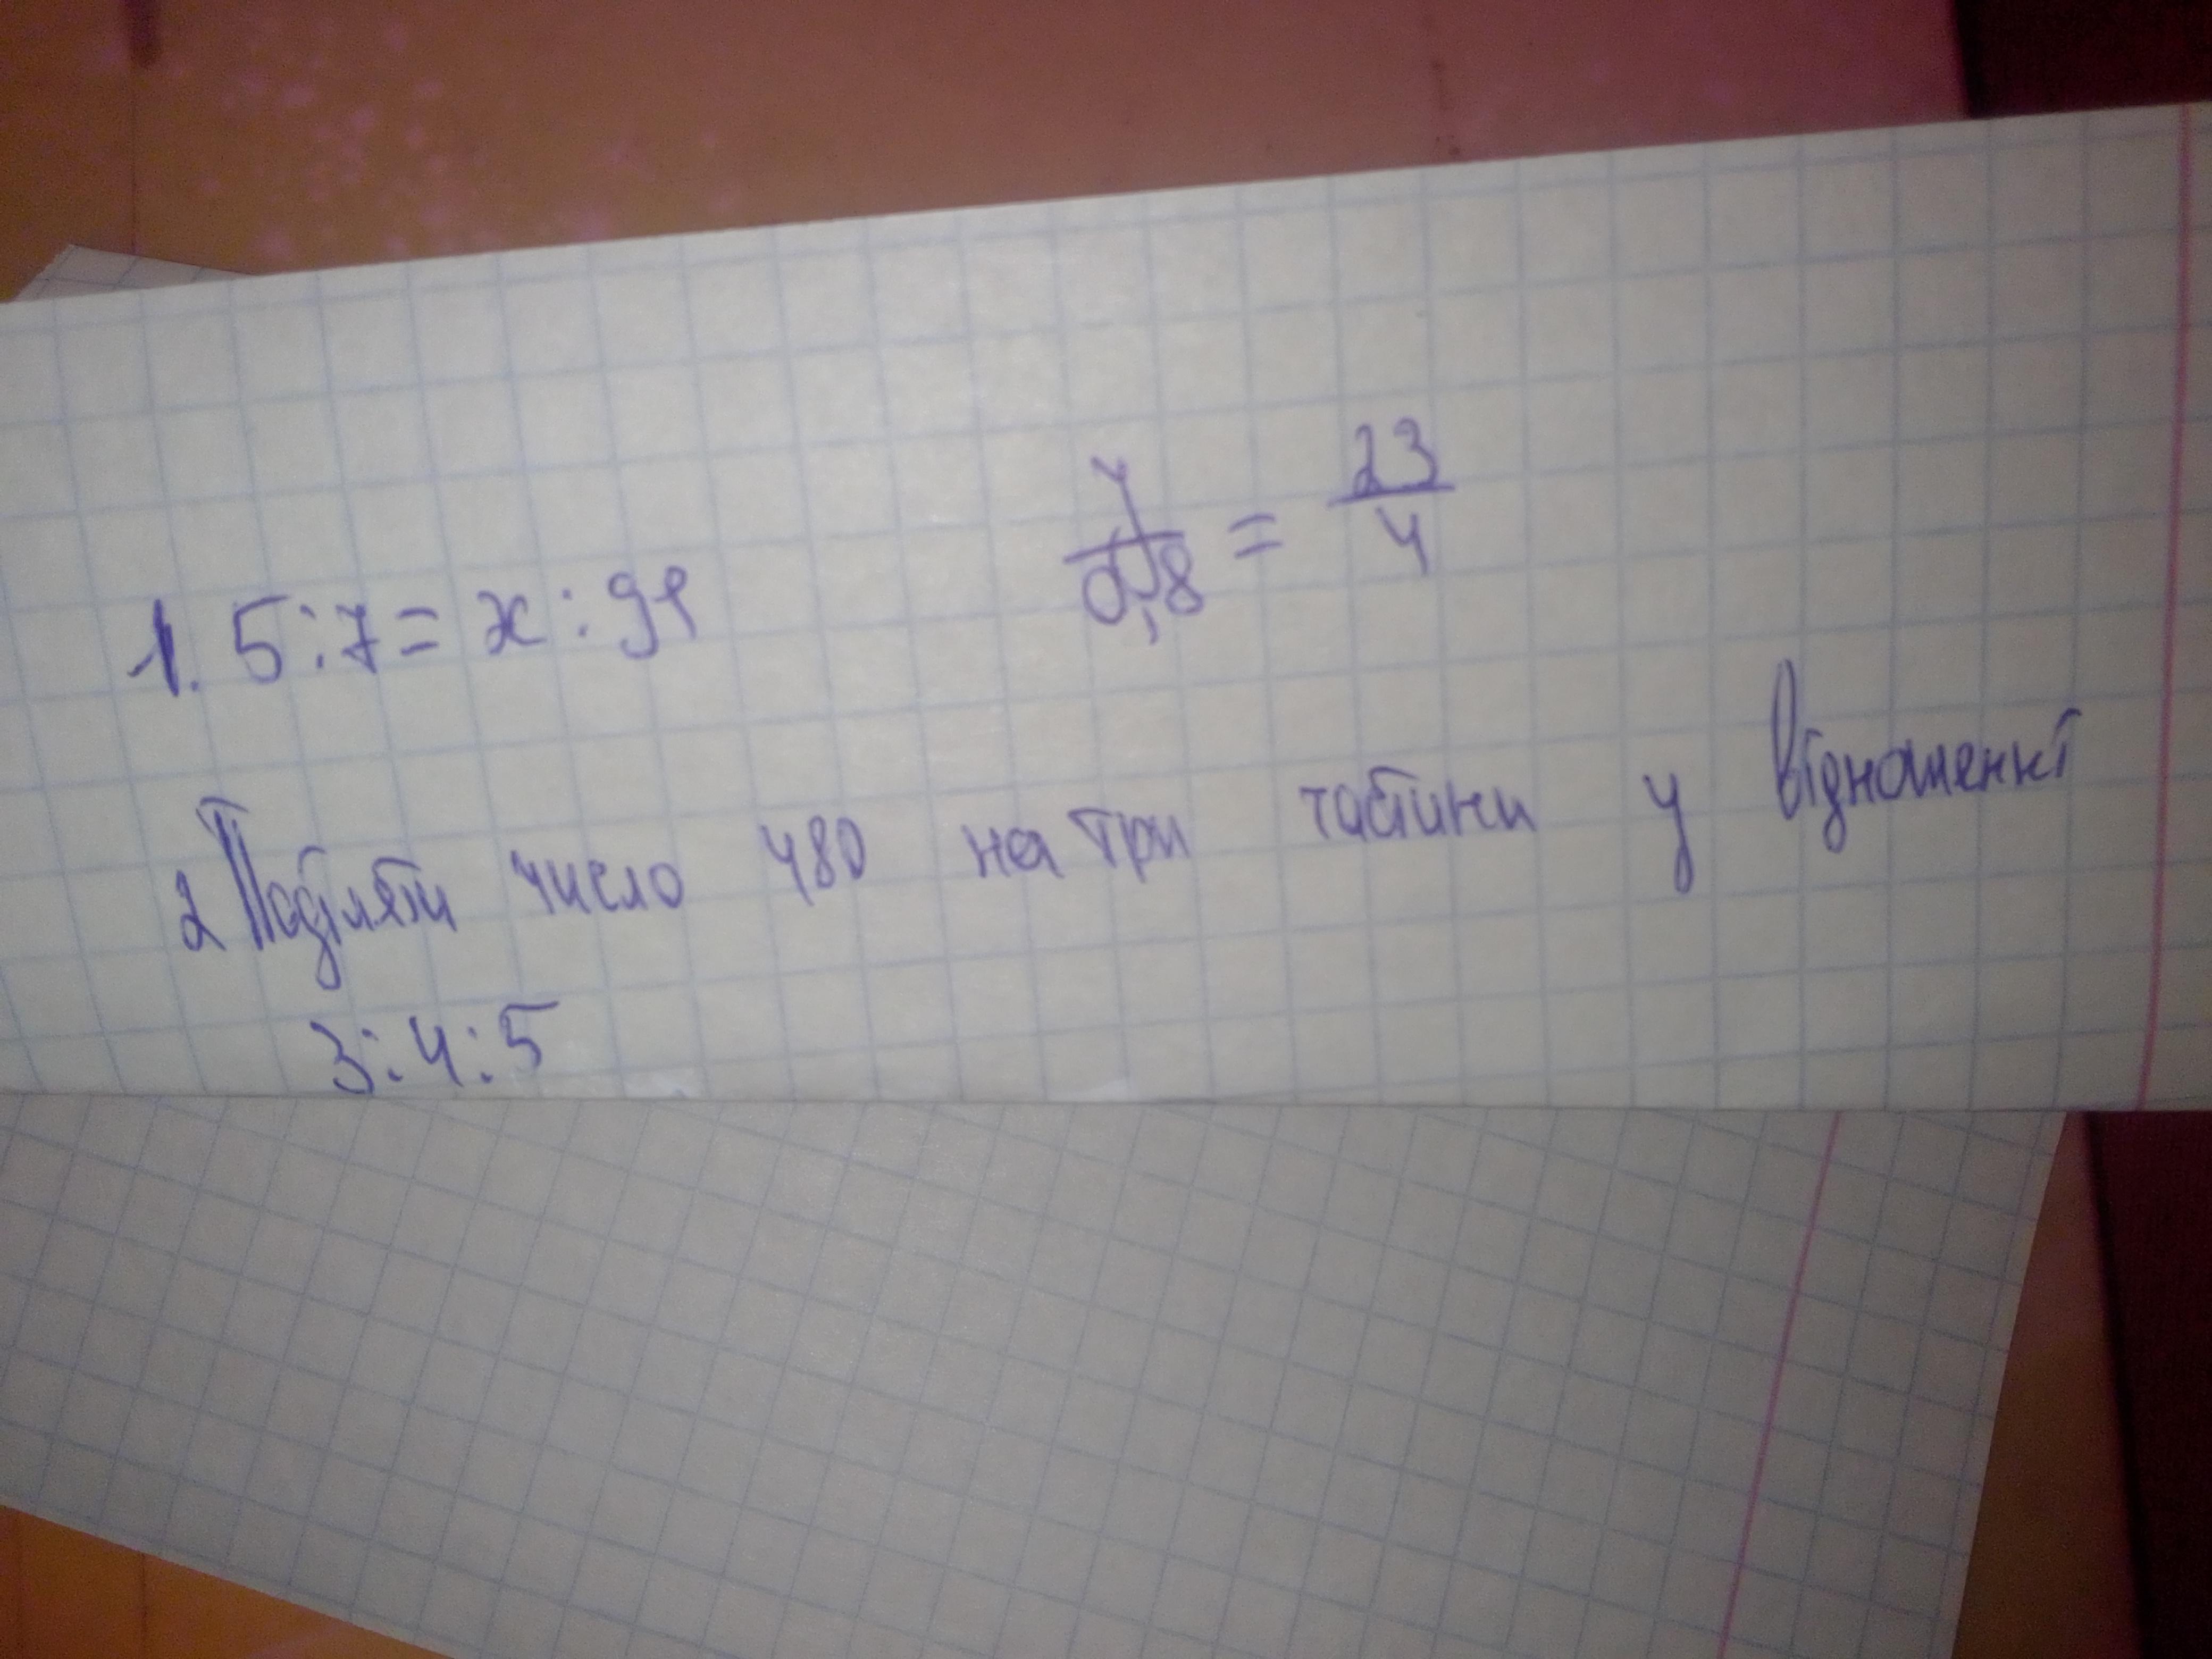 1. 5:7 = x : 91
y/0,8 = 23/4
2 Поділяти число 480 на три частини у відношенні
3:4:5